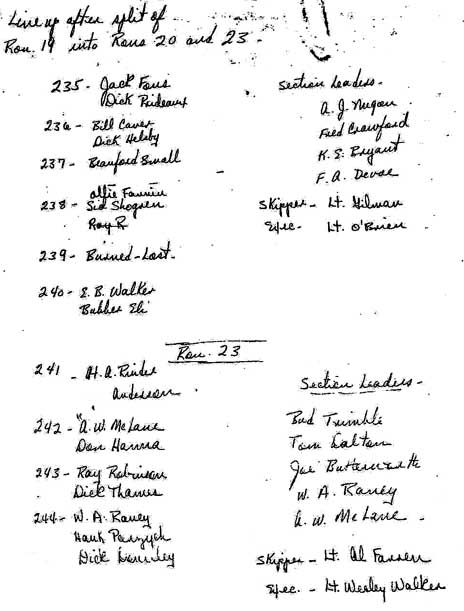 Line up after split of
Ron. 19 into Rons 20 and 23 -
235 - Jack Fons
Dick Prideaux
236 - Bill Caver
Dick Helsby
237 - Beauford Small
Alfie Fannin
238 - Sid Shogren
Roy R
239 - Burned - Lost.
240 - E. B. Walker
Bubber Eli
Section Leaders -
A. J. Nugon
Fred Crawford
K. E. Bryant
F. A. Devoe
Skipper - Lt. Gilman
Exec. - Lt. O'Brien
Ron. 23
241 - H. A. Rinder
Anderson
242 - "A. W. McLane
Don Hanna
243 - Ray Robinson
Dick Thames
244 - W. A. Raney
Hank Perzych
Dick
Section Leaders -
Bud Trimble
Tom Calton
Joe
W. A. Raney
A. W. McLane -
Skipper - Lt. Al Farren
Exec. - Lt. Wesley Walker